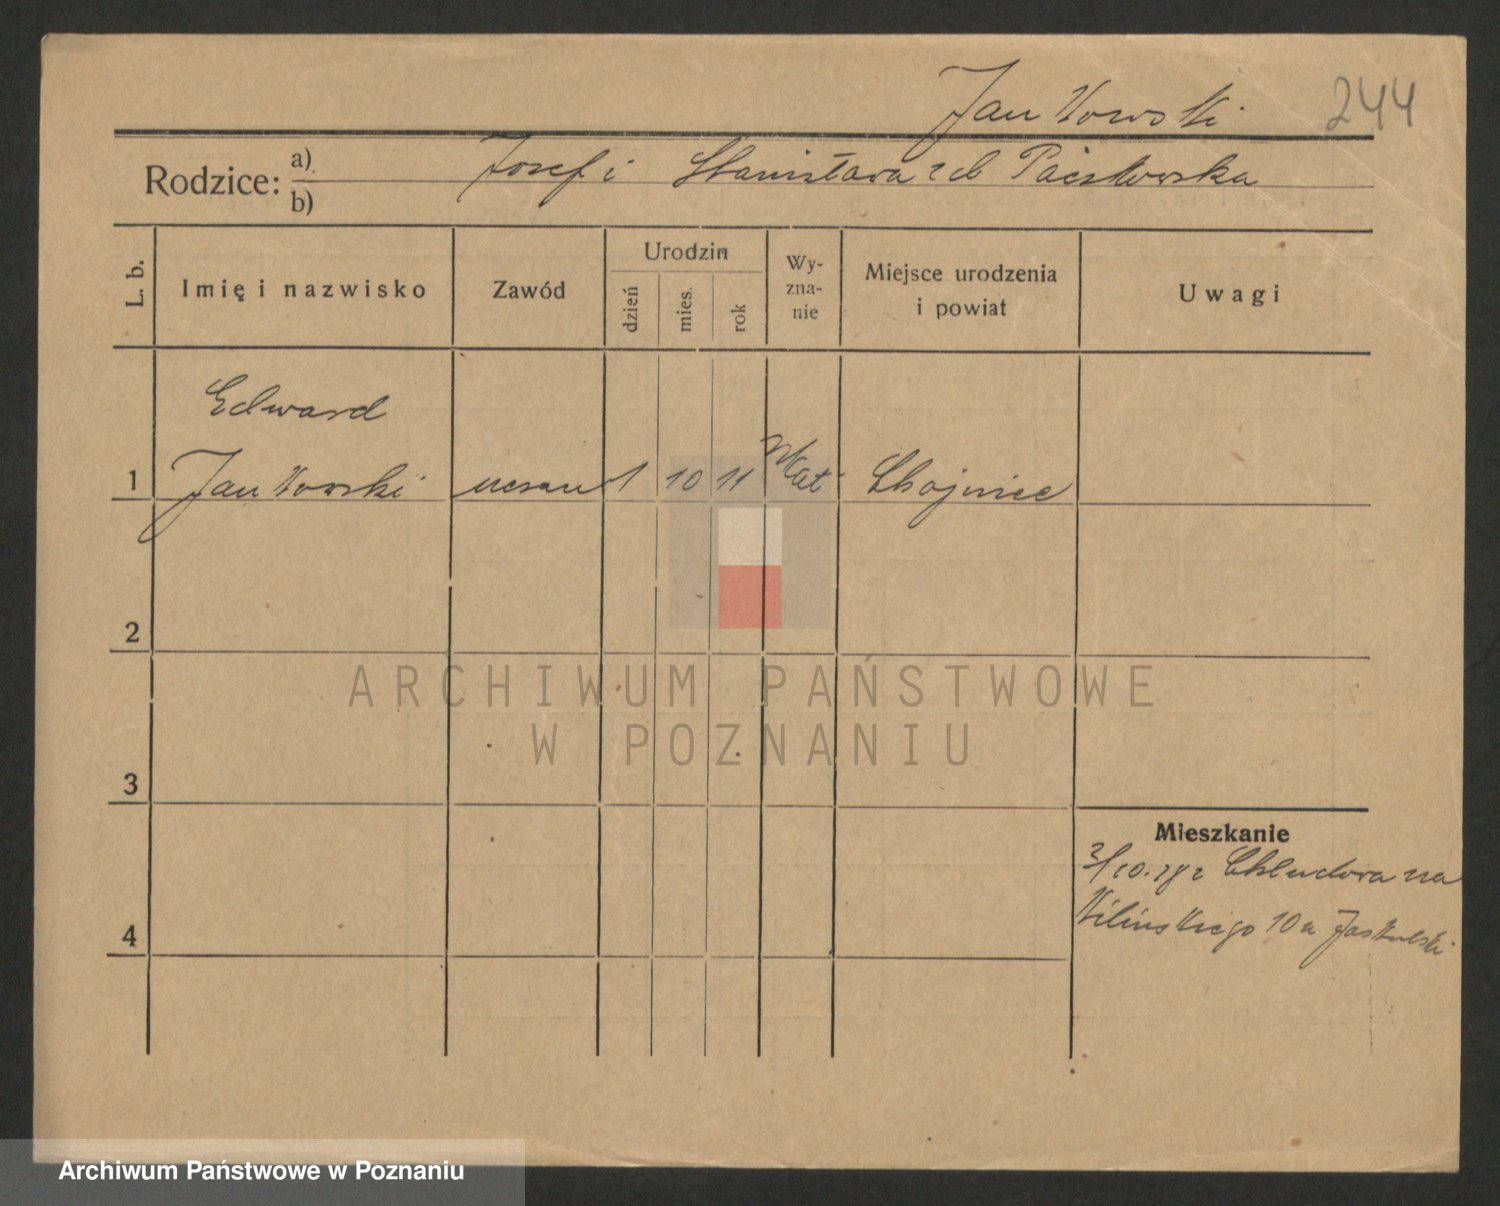 Jankowski 244
Rodzice: a) Josef i Stanisława z d Paczkowska
b)
L. b. Imię i nazwisko Zawód Urodzin dzień mies. rok Wy-zna-nie Miejsce urodzenia i powiat Uwagi
Edward
1 Jankowski uczeń 1 10 11 Kat Chojnice
2
3
4
Mieszkanie
3/10.28 z Chludowa na
Kilińskiego 10 u Jaskulski
ARCHIWUM PAŃSTWOWE
W POZNANIU
Archiwum Państwowe w Poznaniu